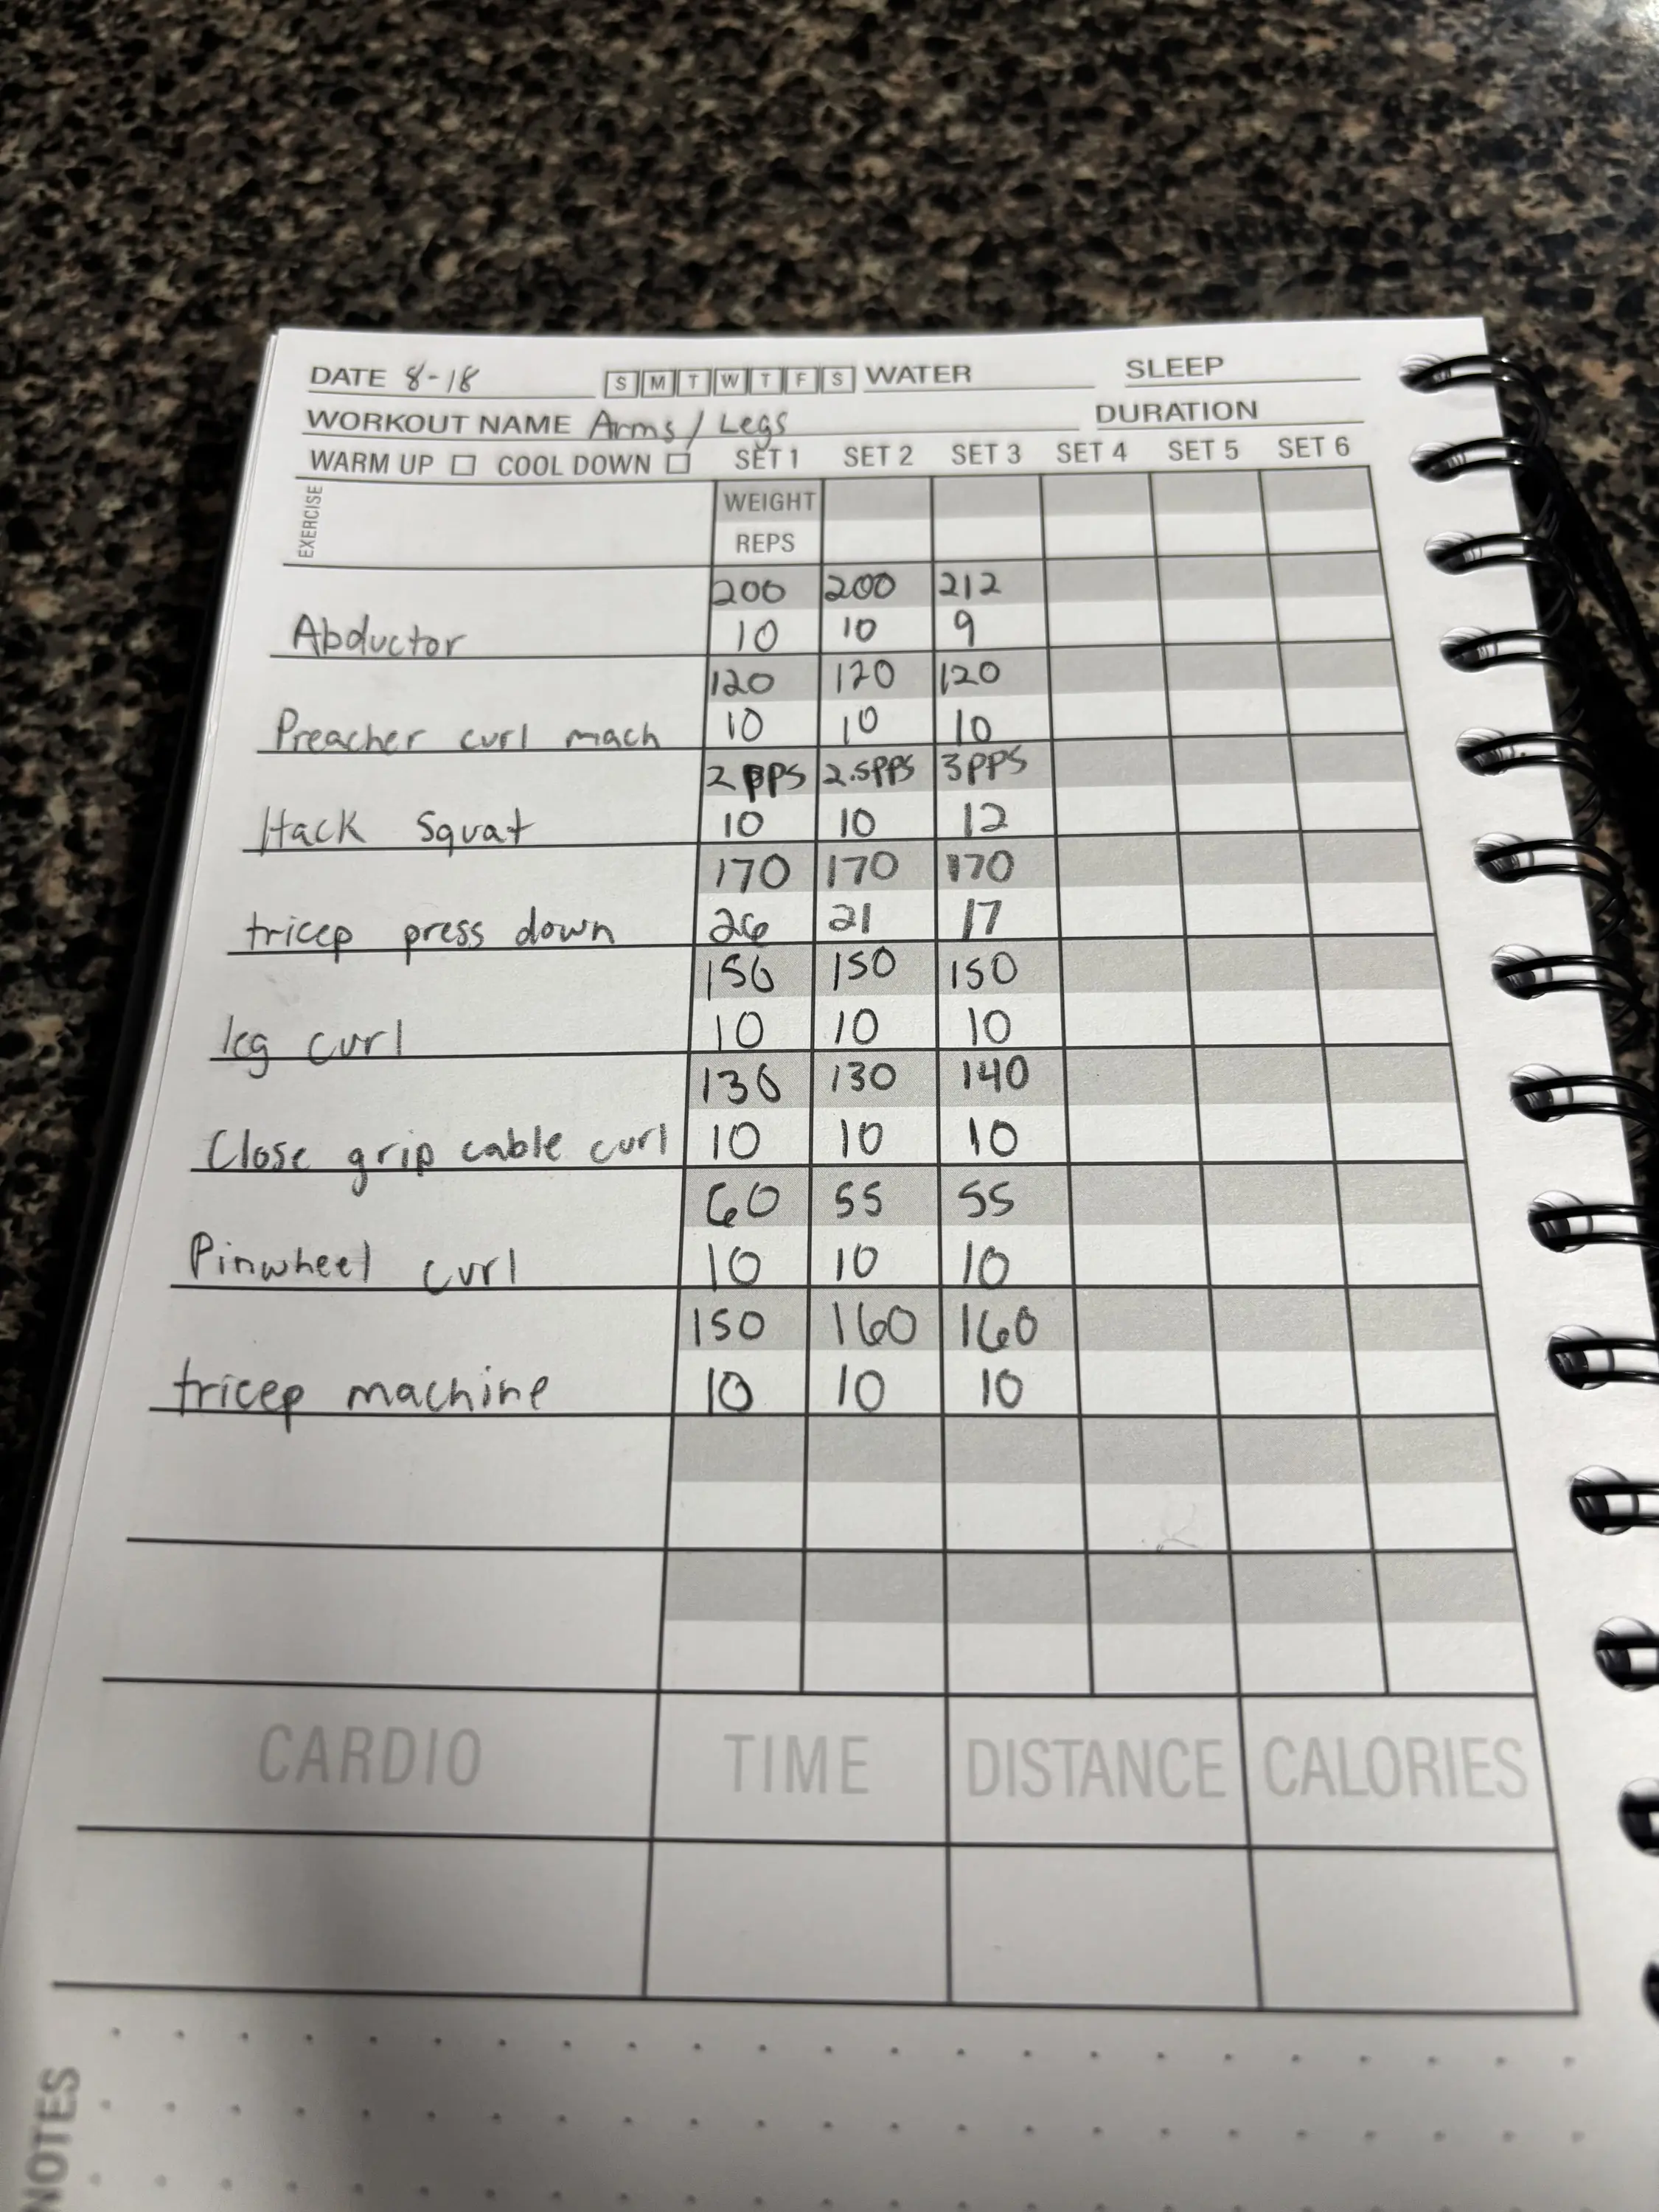 DATE 8-18 S M T W T F S WATER SLEEP
WORKOUT NAME Arms/Legs DURATION
WARM UP COOL DOWN SET 1 SET 2 SET 3 SET 4 SET 5 SET 6
EXERCISE
WEIGHT
REPS
200 200 212
Abductor 10 10 9
120 120 120
Preacher curl mach 10 10 10
2 PPS 2.5PPS 3PPS
Hack Squat 10 10 12
170 170 170
tricep press down 26 21 17
150 150 150
leg curl 10 10 10
130 130 140
Close grip cable curl 10 10 10
60 55 55
Pinwheel curl 10 10 10
150 160 160
tricep machine 10 10 10
CARDIO TIME DISTANCE CALORIES
NOTES